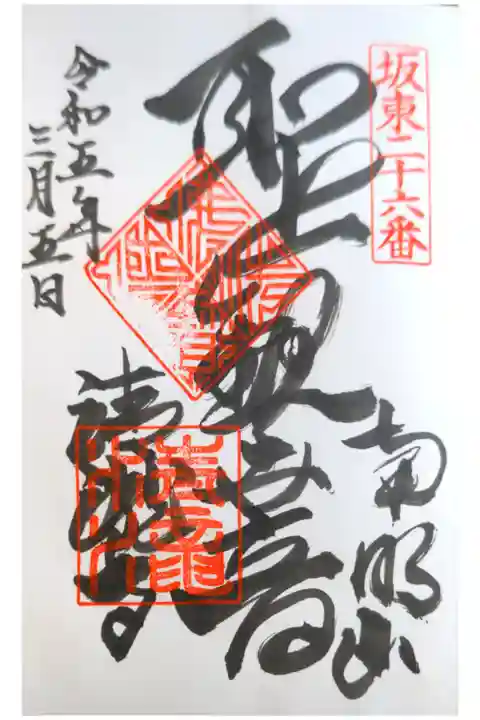 坂東二十六番
南明山
聖観世音
清瀧寺
令和五年
三月五日